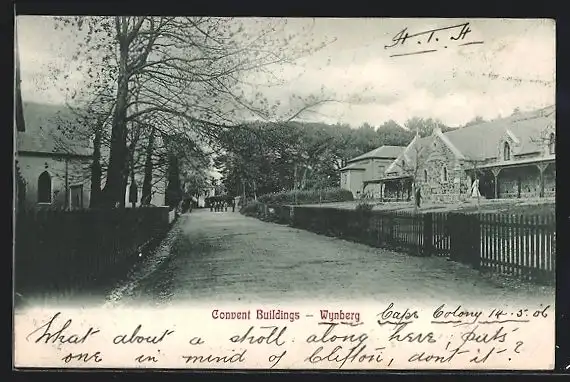 H. I. H
Convent Buildings – Wynberg Cape Colony 14.5.06
What about a stroll along here, puts
one in mind of Clifton, dont it?